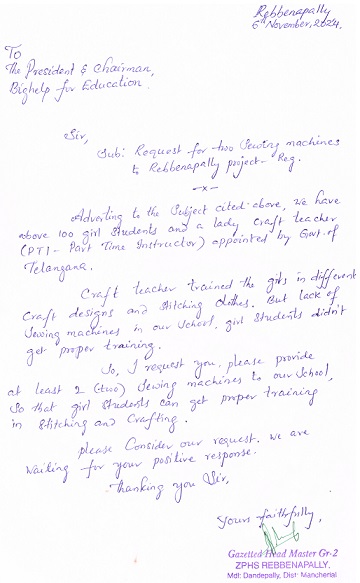 Rebbenapally
6th November, 2024.
To
The President & Chairman,
Bighelp for Education.
Sir,
Sub: Request for two Sewing machines
to Rebbenapally project - Reg.
-x-
Adverting to the Subject cited above, we have
above 100 girl Students and a lady craft teacher
(PTI - Part Time Instructor) appointed by Govt. of
Telangana.
Craft teacher trained the girls in different
Craft designs and Stitching clothes. But lack of
Sewing machines in our School, girl Students didn't
get proper training.
So, I request you, please provide
at least 2 (two) Sewing machines to our School,
So that girl Students can get proper training
in Stitching and Crafting.
please Consider our request. we are
waiting for your positive response.
Thanking you Sir,
Yours faithfully,
Gazetted Head Master Gr-2
ZPHS REBBENAPALLY.
Mdl: Dandepally, Dist: Mancherial